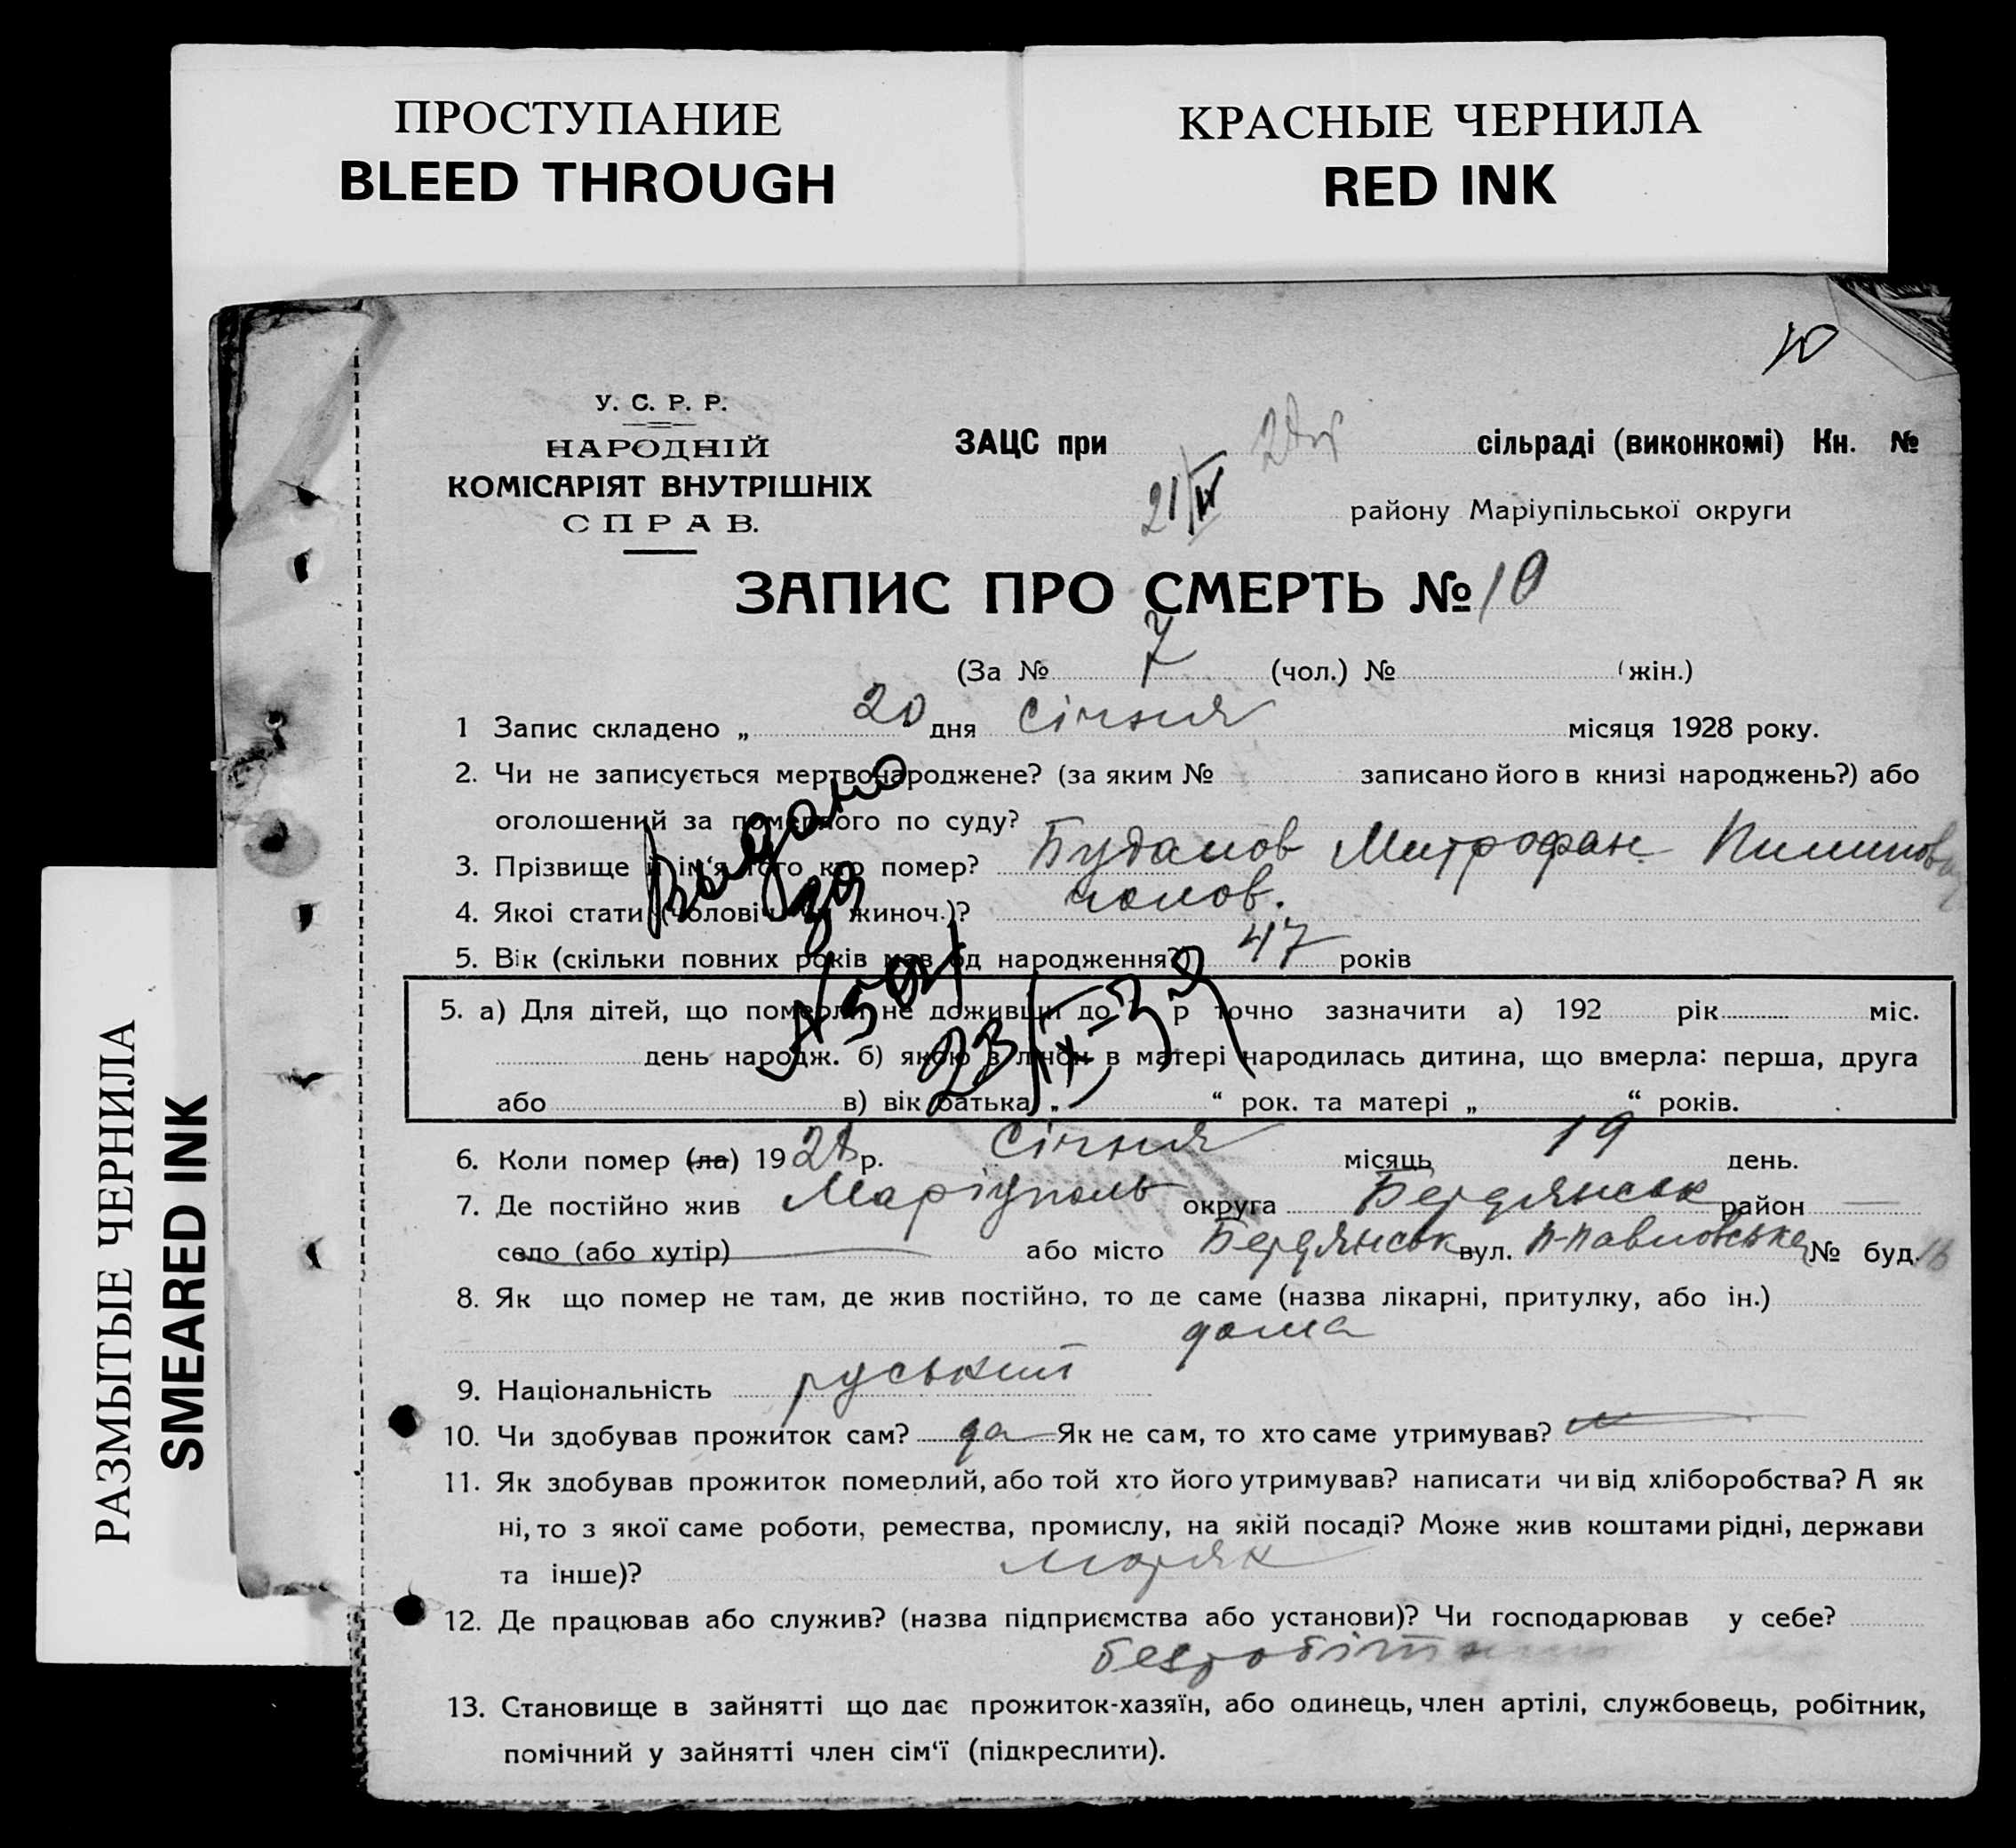 ПРОСТУПАНИЕ
BLEED THROUGH
КРАСНЫЕ ЧЕРНИЛА
RED INK
РАЗМЫТЫЕ ЧЕРНИЛА
SMEARED INK
10
У. С. Р. Р.
НАРОДНІЙ
КОМІСАРІЯТ ВНУТРІШНІХ
СПРАВ.
ЗАЦС при сільраді (виконкомі) Кн. №
21/IV району Маріупільської округи
ЗАПИС ПРО СМЕРТЬ № 10
(За № 7 (чол.) № (жін.)
1 Запис складено „ 20 дня Січня місяця 1928 року.
2. Чи не записується мертвонароджене? (за яким № записано його в книзі народжень?) або
оголошений за померлого по суду?
3. Прізвище й ім'я того хто помер? Буданов Митрофан
4. Якоі стати (чоловіч. чи жиноч.)? чолов.
5. Вік (скільки повних років мав од народження?) 47 років
Видано
5. а) Для дітей, що померли не доживши до р точно зазначити а) 192 рік міс.
день народж. б) якою з ліном в матері народилась дитина, що вмерла: перша, друга
або в) вік батька „ “ рок. та матері „ “ років.
6. Коли помер (ла) 1928 р. Січня місяць 19 день.
7. Де постійно жив Маріуполь округа Бердянськ район
село (або хутір) або місто Бердянськ вул. П-Павловська № буд. 16
8. Як що помер не там, де жив постійно, то де саме (назва лікарні, притулку, або ін.)
дома
9. Національність руський
10. Чи здобував прожиток сам? да Як не сам, то хто саме утримував?
11. Як здобував прожиток померлий, або той хто його утримував? написати чи від хліборобства? А як
ні, то з якої саме роботи, ремества, промислу, на якій посаді? Може жив коштами рідні, держави
та інше)? моряк
12. Де працював або служив? (назва підприємства або установи)? Чи господарював у себе?
безробітн
13. Становище в зайнятті що дає прожиток-хазяїн, або одинець, член артілі, службовець, робітник,
помічний у зайнятті член сім‘ї (підкреслити).